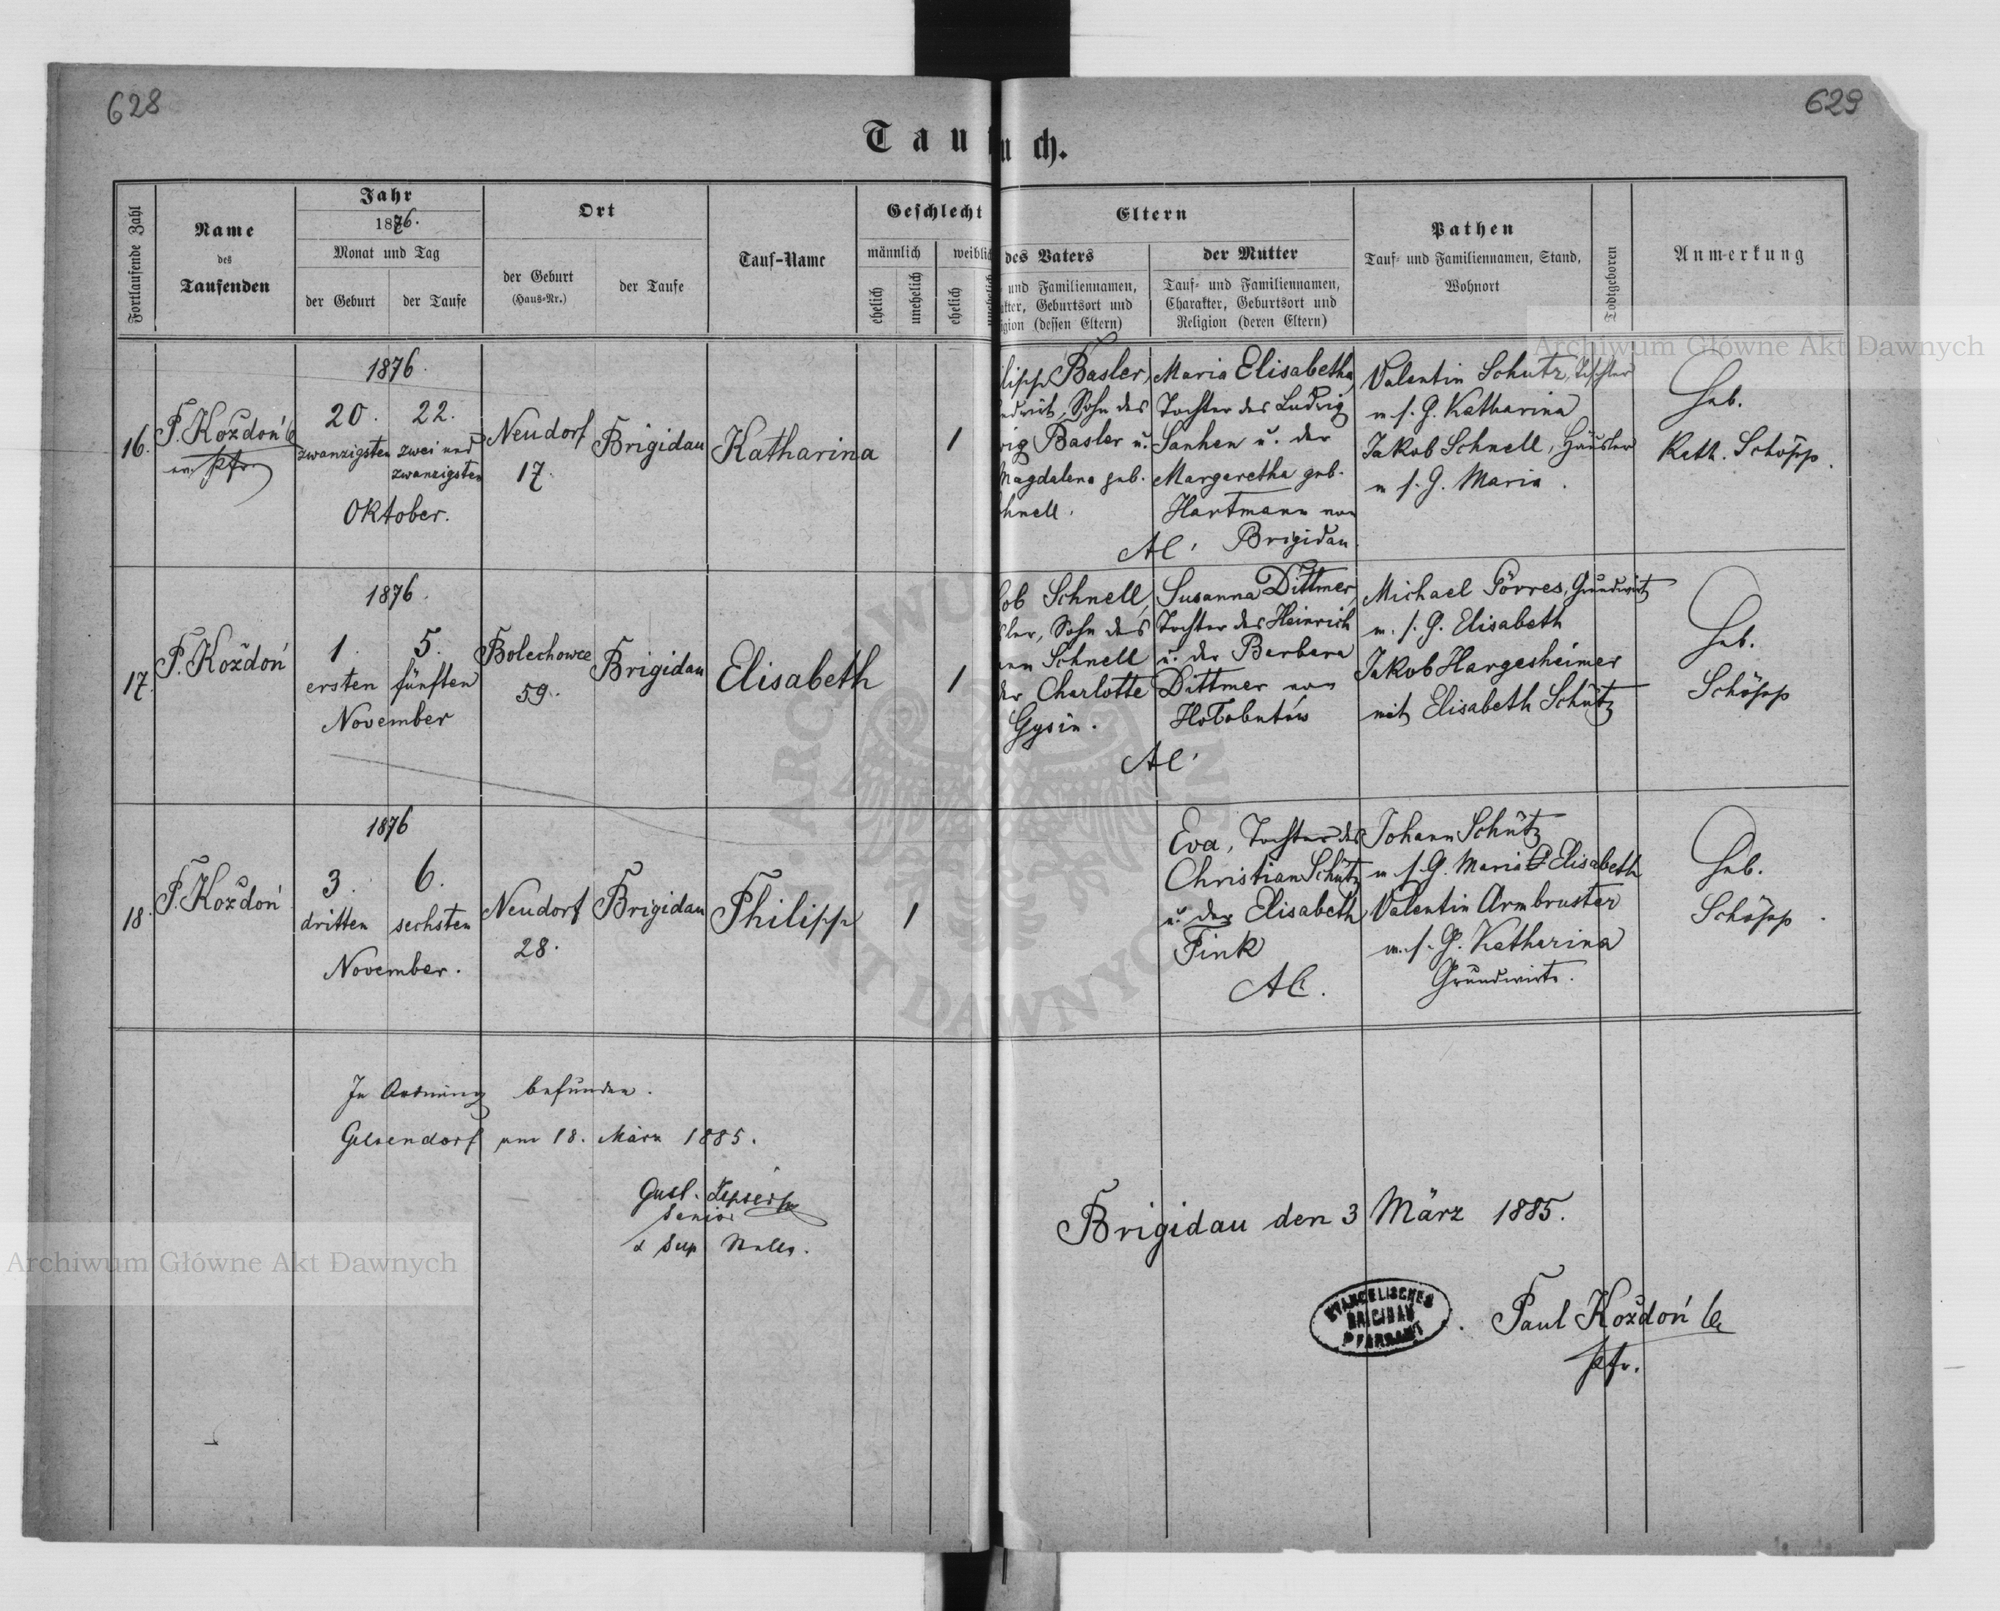 628
629
Tau
uch.
Fortlaufende Zahl
Name
des
Taufenden
Jahr
1876.
Monat und Tag
der Geburt
der Taufe
Ort
der Geburt
(Haus-Nr.)
der Taufe
Tauf-Name
Geschlecht
männlich
weiblich
ehelich
unehelich
ehelich
unehelich
Eltern
des Vaters
und Familiennamen,
Geburtsort und
(dessen Eltern)
der Mutter
Tauf- und Familiennamen,
Charakter, Geburtsort und
Religion (deren Eltern)
Pathen
Tauf- und Familiennamen, Stand,
Wohnort
Todtgeboren
Anmerkung
16.
P. Kożdoń
ev. Pfr.
1876.
20. 22.
zwanzigsten zwei und
zwanzigsten
Oktober.
Neudorf
17.
Brigidau
Katharina
1
Basler,
Sohn des
Basler u.
Magdalena geb.
Maria Elisabetha
Tochter des Ludwig
u. der
Margaretha geb.
Hartmann von
Brigidau.
AC.
Valentin Schutz, Tischler
m. s. G. Katharina
Jakob Schnell, Häusler
m s. G. Maria.
Heb.
Kath. Schöpp.
17.
P. Kożdoń
1876.
1. 5.
ersten fünften
November
Bolechowce
59.
Brigidau
Elisabeth
1
Schnell,
Sohn des
Schnell
der Charlotte
Gysin.
Susanna Dittmer,
Tochter des Heinrich
u. der Barbara
Dittmer von
AC.
Michael Görres, Grundwirt
m. s. G. Elisabeth
Jakob Hargesheimer
mit Elisabeth Schütz
Heb.
Schöpp
18.
P. Kożdoń
1876
3. 6.
dritten sechsten
November.
Neudorf
28.
Brigidau
Philipp
1
Eva, Tochter des
Christian Schütz
u. der Elisabeth
Fink
AC.
Johann Schütz
m s. G. Maria Elisabeth
Valentin Armbruster
m. s. G. Katharina
Grundwirte.
Heb.
Schöpp.
In Ordnung befunden.
Gelsendorf am 18. März 1885.
Senior
Brigidau den 3 März 1885.
EVANGELISCHES
BRIGIDAU
PFARRAMT
Paul Kożdoń
Pfr.
Archiwum Główne Akt Dawnych
Archiwum Główne Akt Dawnych